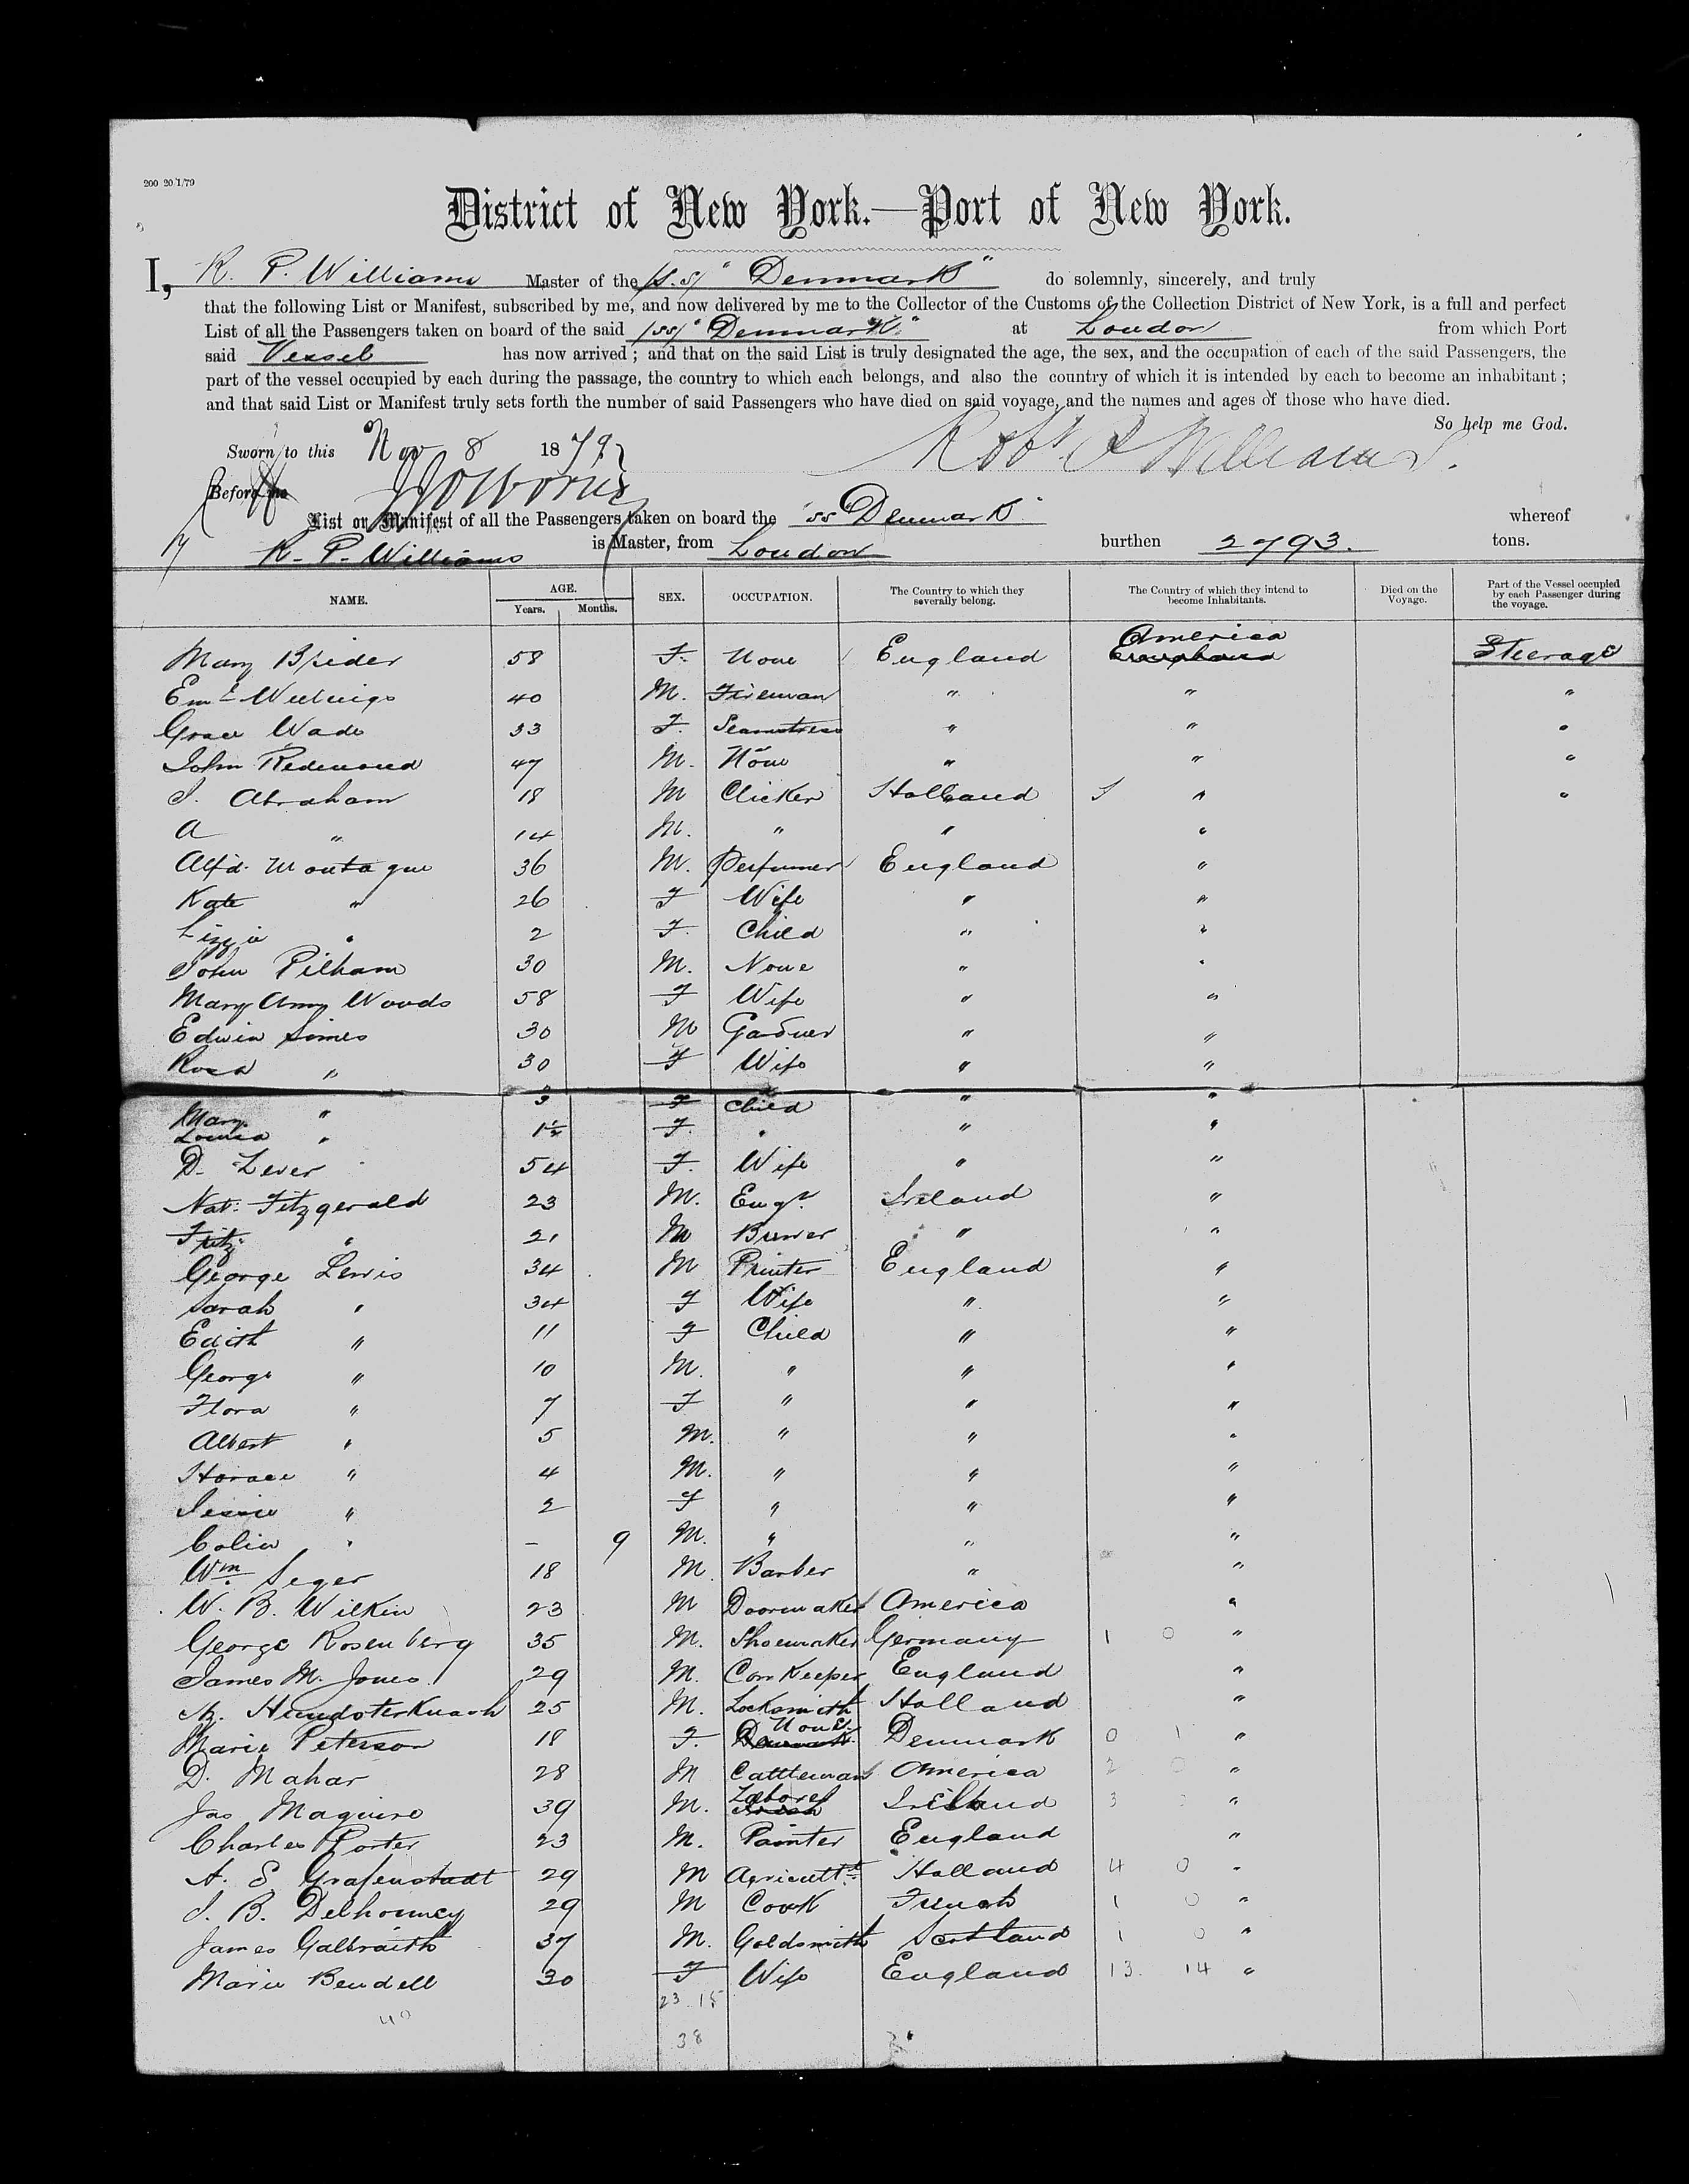 200 20/1/79
District of New York.—Port of New York.
I, R. P. Williams Master of the S.S. "Denmark" do solemnly, sincerely, and truly
that the following List or Manifest, subscribed by me, and now delivered by me to the Collector of the Customs of the Collection District of New York, is a full and perfect
List of all the Passengers taken on board of the said SS "Denmark" at London from which Port
said Vessel has now arrived; and that on the said List is truly designated the age, the sex, and the occupation of each of the said Passengers, the
part of the vessel occupied by each during the passage, the country to which each belongs, and also the country of which it is intended by each to become an inhabitant;
and that said List or Manifest truly sets forth the number of said Passengers who have died on said voyage, and the names and ages of those who have died.
So help me God.
Sworn to this Nov 8 1879 Robt P Williams.
Before me
List or Manifest of all the Passengers taken on board the "SS Denmark" whereof
R. P. Williams is Master, from London burthen 2793. tons.
NAME. AGE. Years. Months. SEX. OCCUPATION. The Country to which they severally belong. The Country of which they intend to become Inhabitants. Died on the Voyage. Part of the Vessel occupied by each Passenger during the voyage.
Mary 58 F. None England America Steerage
40 M. Fireman " " "
Grace Wade 33 F. Seamstress " " "
John Redmond 47 M. None " " "
J. Abraham 18 M Clicker Holland " "
A " 14 M. " " "
Alfd. Montague 36 M. Perfumer England "
Kate " 26 F Wife " "
Lizzie " 2 F. Child " "
John Pelham 30 M. None " "
Mary Amy Woods 58 F Wife " "
Edwin Simes 30 M Gardner " "
Rosa " 30 F Wife " "
Mary " 3 F Child " "
Louisa " 1½ F. " " "
D. Lever 54 F. Wife " "
Nat. Fitzgerald 23 M. Engr. Ireland "
Fritz " 21 M Brewer " "
George Lewis 34 M Printer England "
Sarah " 34 F Wife " "
Edith " 11 F Child " "
George " 10 M. " " "
Flora " 7 F " " "
Albert " 5 M. " " "
Horace " 4 M. " " "
Jessie " 2 F " " "
Colin " – 9 M. " " "
Wm. Seger 18 M. Barber " "
W. B. Wilkin 23 M Doormaker America "
George Rosenberg 35 M. Shoemaker Germany 1 0 "
James M. Jones 29 M. Cow Keeper England "
25 M. Locksmith Holland "
Marie Peterson 18 F. None Denmark 0 1 "
D. Mahar 28 M Cattleman America 2 0 "
Jas Maguire 39 M. Laborer Ireland 3 "
Charles Porter 23 M. Painter England "
A. E. Grafenstadt 29 M Agricultt. Holland 4 0 "
J. B. Delhouncy 29 M Cook French 1 0 "
James Galbraith 37 M. Goldsmith Scotland 1 0 "
Marie Bendell 30 F Wife England 13. 14 "
23.15
40
38